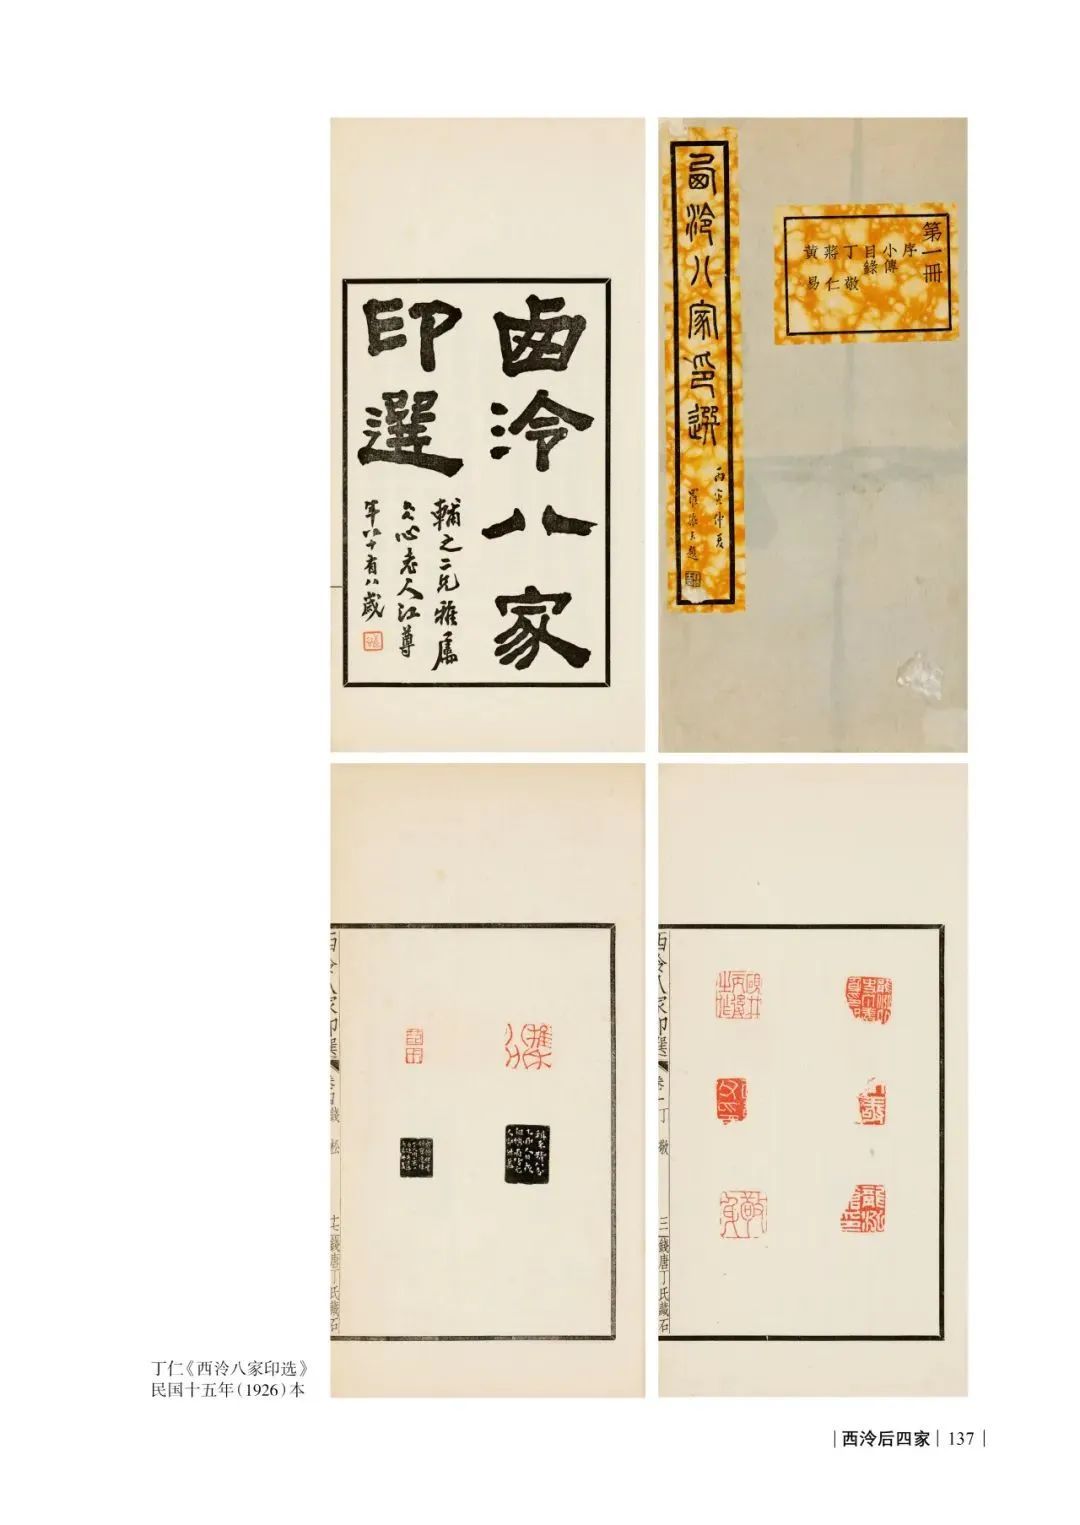 西泠八家
印選
輔之二兄雅屬
年八十有八歲
西泠八家印選
丙寅仲夏
羅振玉題
第一冊
序
小傳
目錄
丁敬
蔣仁
黃易
西泠八家印選
卷四錢松
十七
錢唐丁氏藏石
西泠八家印選
卷一丁敬
三
錢唐丁氏藏石
丁仁《西泠八家印选》
民国十五年（1926）本
西泠后四家 137